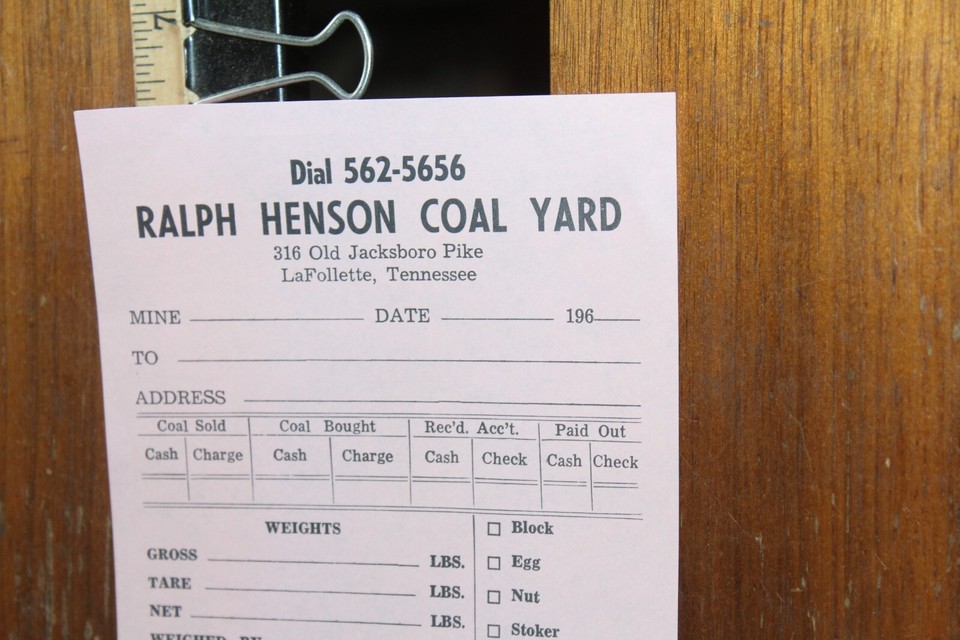 7
Dial 562-5656
RALPH HENSON COAL YARD
316 Old Jacksboro Pike
LaFollette, Tennessee
MINE DATE 196
TO
ADDRESS
Coal Sold Coal Bought Rec'd. Acc't. Paid Out
Cash Charge Cash Charge Cash Check Cash Check
WEIGHTS
Block
GROSS LBS.
Egg
TARE LBS.
Nut
NET LBS.
Stoker
WEIGHED BY